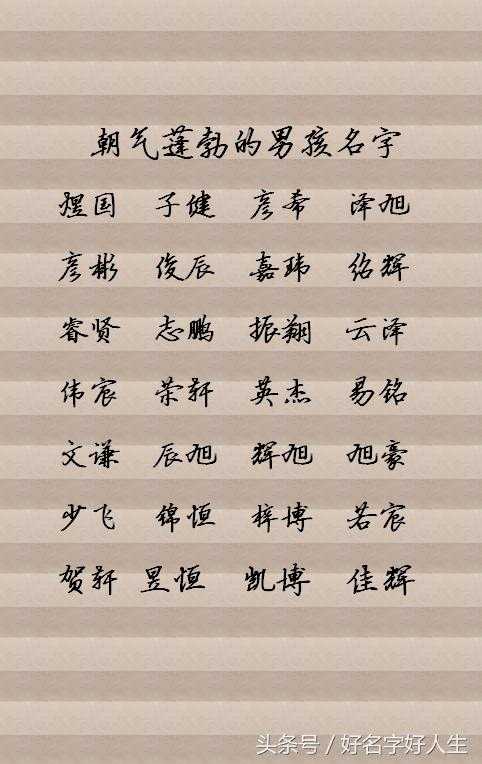 朝气蓬勃的男孩名字
煜国 子健 彦希 泽旭
彦彬 俊辰 嘉玮 绍辉
睿贤 志鹏 振翔 云泽
伟宸 荣轩 英杰 易铭
文谦 辰旭 辉旭 旭豪
少飞 锦恒 梓博 若宸
贺轩 昱恒 凯博 佳辉
头条号 / 好名字好人生